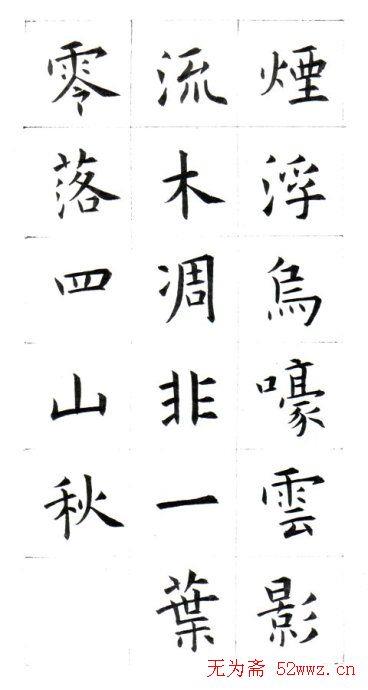 煙浮烏嚎雲影
流木凋非一葉
零落四山秋
无为斋 52wwz.cn